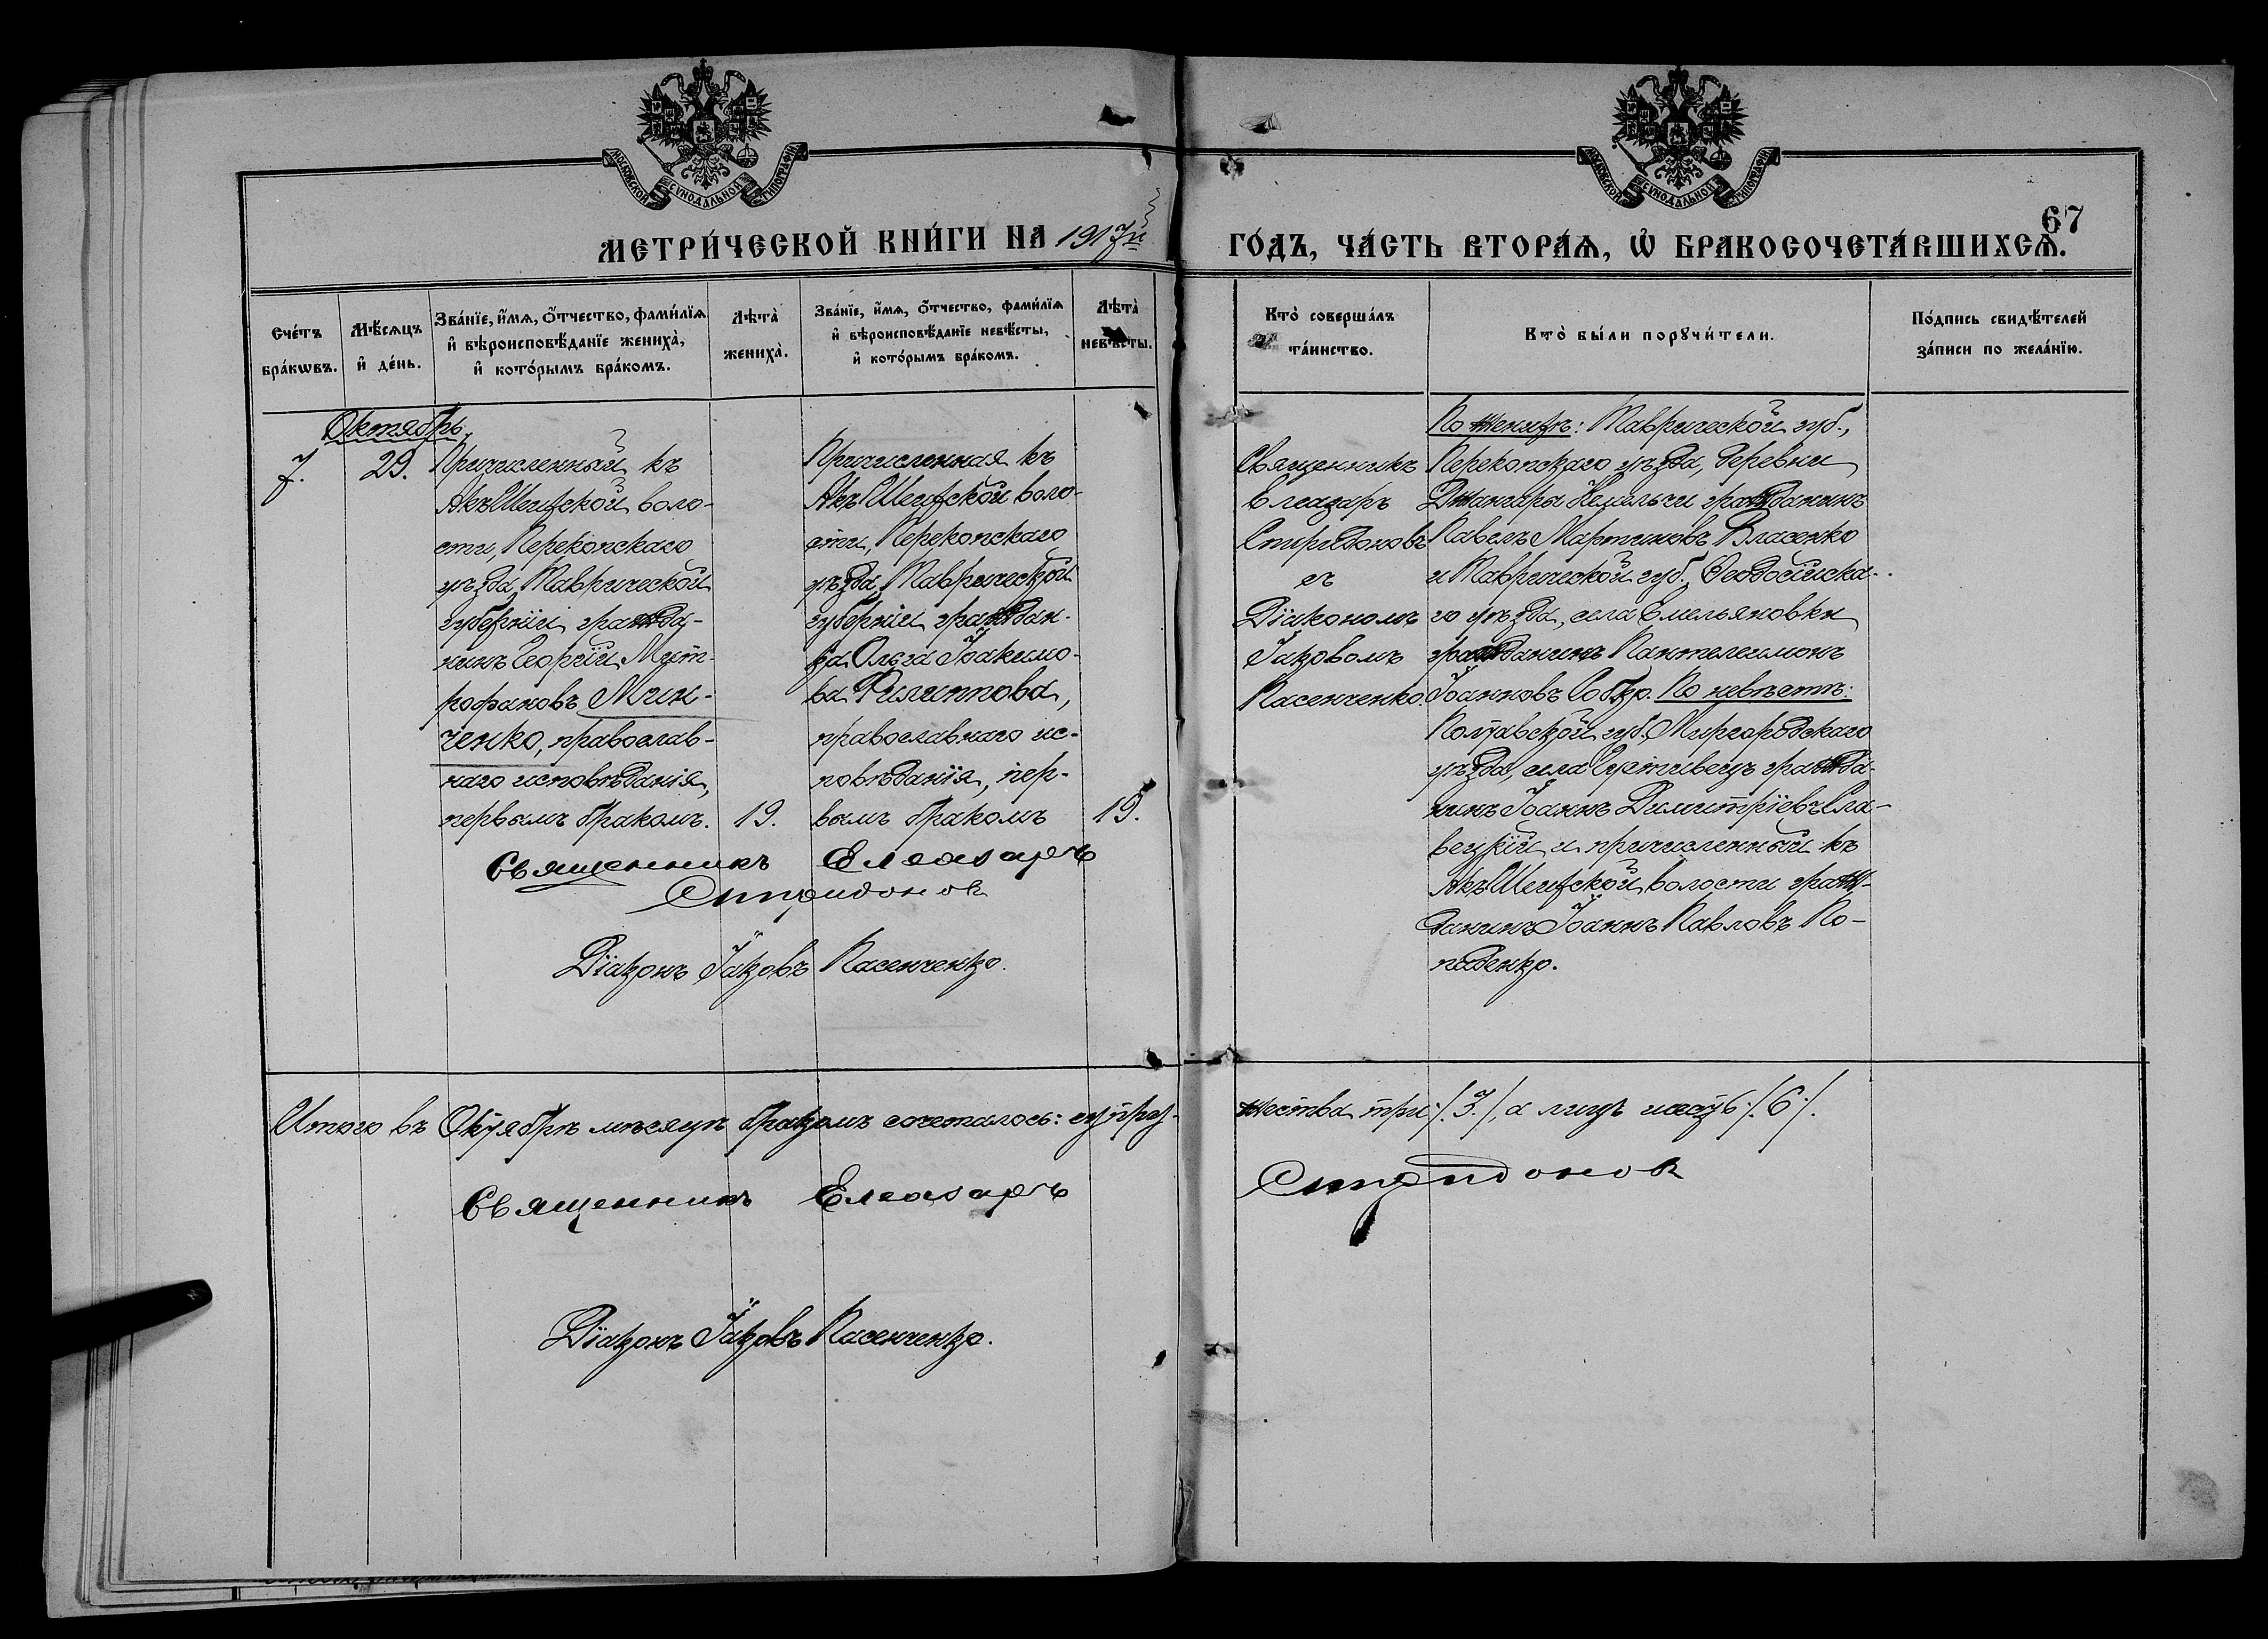 МОСКОВСКОЙ СУНОДАЛЬНОЙ ТИПОГРАФІИ
МОСКОВСКОЙ СУНОДАЛЬНОЙ ТИПОГРАФІИ
67
МЕТРИ́ЧЕСКОЙ КНИ́ГИ НА 1917й ГО́ДЪ, ЧА́СТЬ ВТОРА́Ѧ, Ѡ҆ БРАКОСОЧЕТА́ВШИХСѦ.
Сче́тъ бра́кѡвъ.
Мѣ́сѧцъ и҆ де́нь.
Зва́нїе, и҆́мѧ, ѻ҆́тчество, фами́лїѧ
и҆ вѣроисповѣ́данїе жениха̀,
и҆ кото́рымъ бра́комъ.
Лѣта̀
жениха̀.
Зва́нїе, и҆́мѧ, ѻ҆́тчество, фами́лїѧ
и҆ вѣроисповѣ́данїе невѣ́сты,
и҆ кото́рымъ бра́комъ.
Лѣта̀
невѣ́сты.
Кто̀ соверша́лъ
та́инство.
Кто̀ бы́ли порꙋчи́тели.
По́дпись свидѣ́телей
за́писи по жела́нїю.
Октябрь.
7.
29.
Причисленный къ
Акъ Шеихской воло-
сти, Перекопскаго
уѣзда, Таврической
губерніи гражда-
нинъ Георгій Мит-
рофановъ Мин-
ченко, православ-
наго исповѣданія,
первымъ бракомъ.
19.
Причисленная къ
Акъ Шеихской воло-
сти, Перекопскаго
уѣзда, Таврической
губерніи граждан-
ка Ольга Іоакимо-
ва Филиппова,
православнаго ис-
повѣданія, пер-
вымъ бракомъ
19.
Священникъ
Елеазаръ
Спиридоновъ
съ
Діакономъ
Іаковомъ
Пасенченко.
По женихѣ: Таврической губ.,
Перекопскаго уѣзда, деревни
Джангары гражданинъ
Павелъ Мартиновъ Власенко
и Таврической губ., Ѳеодосійска-
го уѣзда, села Емельяновки
гражданинъ Пантелеимонъ
Іоанновъ Собко. По невѣстѣ:
Полтавской губ., Миргородскаго
уѣзда, села гражда-
нинъ Іоаннъ Димитріевъ Сла-
вецкій и причисленный къ
Акъ Шеихской волости граж-
данинъ Іоаннъ Павловъ По-
паденко.
Священникъ Елеазаръ
Спиридонов
Діаконъ Іаковъ Пасенченко.
Итого въ Октябрѣ мѣсяцѣ бракомъ сочеталось: супру-
жества три /.3./, а лицъ шесть /.6./.
Священникъ Елеазаръ Спиридонов
Діаконъ Іаковъ Пасенченко.